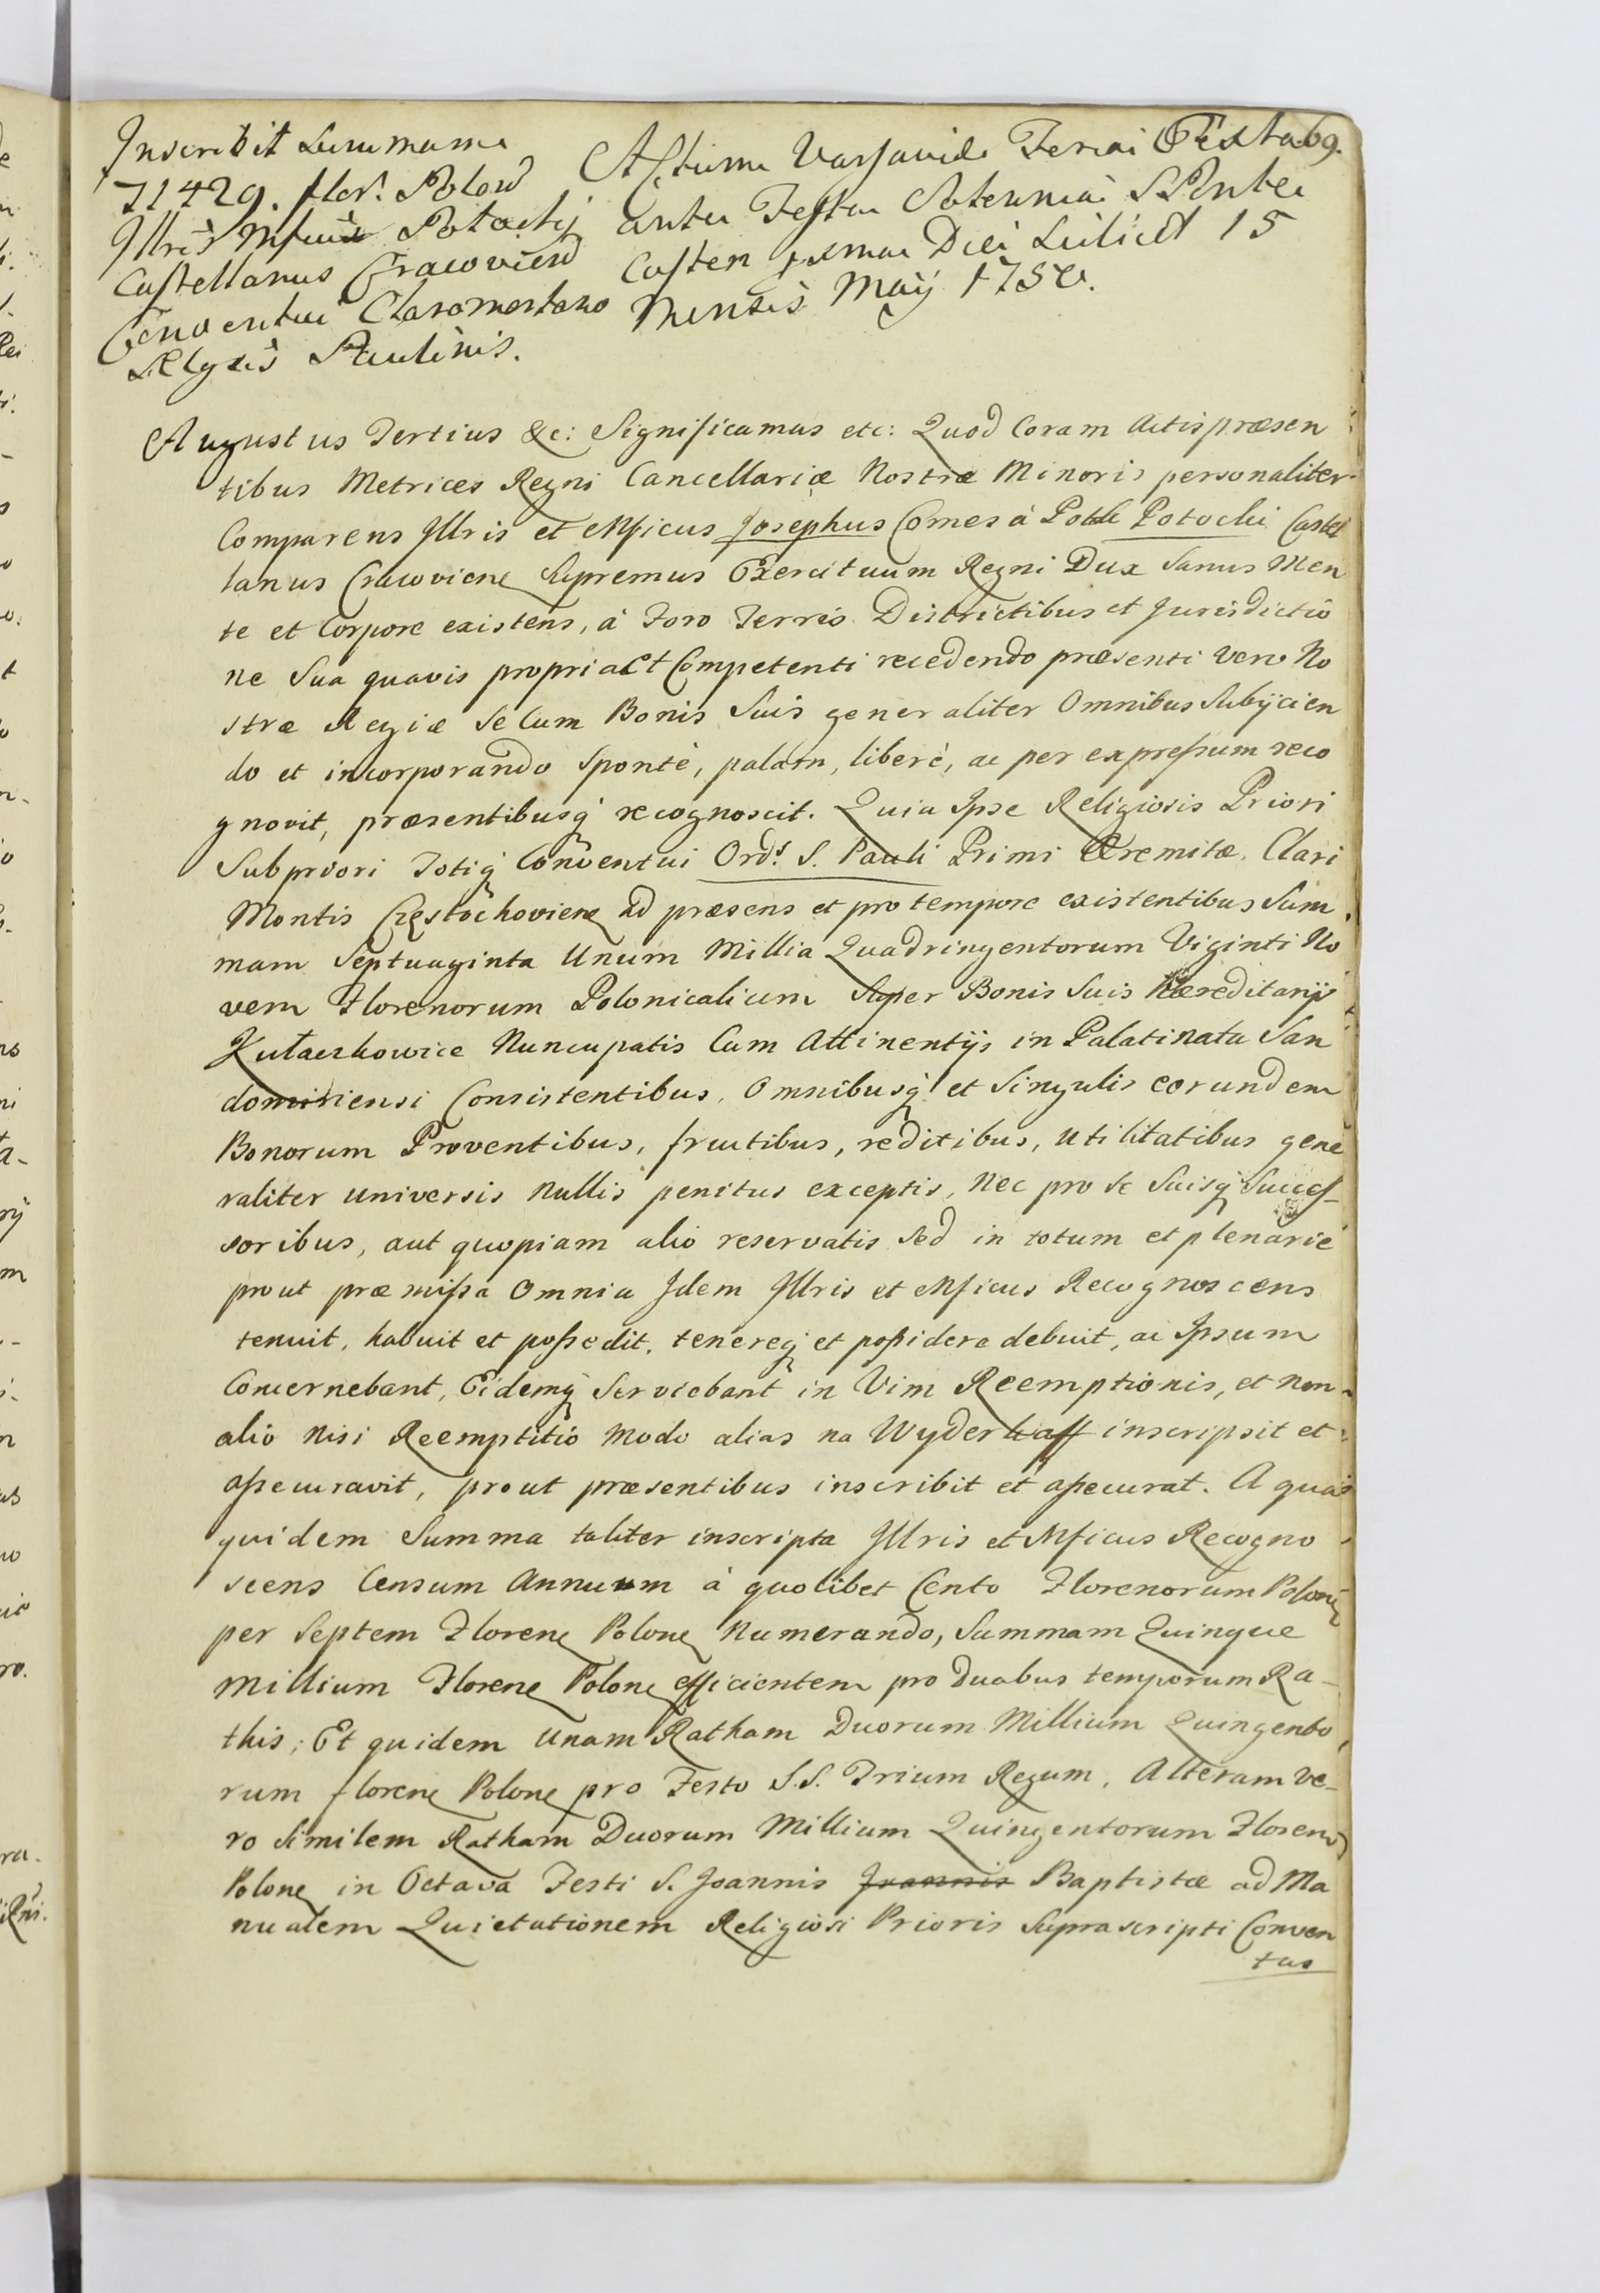 69.
Inscribit Summam
71429. flor: Polon
Illris Mficus Potocki
Castellanus Cracovien
Conventui Claromontano
Relgis Paulinis.
Actum Varsaviæ Feria Sexta
ante Festa Solennia S. Pente
costen proxima Die Scilicet 15
Mensis Maij 1750.
Augustus Tertius &c: Significamus etc: Quod Coram Actis præsen
tibus Metrices Regni Cancellariæ Nostræ Minoris personaliter
Comparens Illris et Mficus Josephus Comes à Potok Potocki Castel
lanus Cracovien Supremus Exercituum Regni Dux Sanus Men
te et Corpore existens, à Foro Terris Districtibus et Jurisdictio
ne Sua quavis propria et Competenti recedendo præsenti vero No
stræ Regiæ Se Cum Bonis Suis generaliter Omnibus Subijcien
do et incorporando Sponte, palam, liberè, ac per expressum reco
gnovit, præsentibusq recognoscit. Quia Ipse Religiosis Priori
Subpriori Totiq Conventui Ordˢ. S. Pauli Primi Eremitæ. Clari
Montis Częstochovien ad præsens et pro tempore existentibus Sum
mam Septuaginta Unum Millia Quadringentorum Viginti No
vem Florenorum Polonicalium Super Bonis Suis Hæreditarijs
Kutaczkowice Nuncupatis Cum Attinentijs in Palatinatu San
domiriensi Consistentibus, Omnibusq et Singulis eorundem
Bonorum Proventibus, fructibus, reditibus, utilitatibus gene
raliter universis nullis penitus exceptis, Nec pro Se Suisq Succes
soribus, aut quopiam alio reservatis Sed in totum et plenarie
prout præmissa Omnia Idem Illris et Mficus Recognoscens
tenuit, habuit et possedit, tenereq et possidere debuit, ac Ipsum
Concernebant, Eidemq Serviebant in Vim Reemptionis, et non
alio Nisi Reemptitio Modo alias na Wyderkaff inscripsit et
assecuravit, prout præsentibus inscribit et assecurat. A qua
quidem Summa taliter inscripta Illris et Mficus Recogno
scens Censum Annuum à quolibet Cento Florenorum Polon
per Septem Floren Polon Numerando, Summam Quinque
Millium Floren Polon efficientem pro Duabus temporum Ra-
this; Et quidem Unam Ratham Duorum Millium Quingento
rum floren Polon pro Festo S.S. Trium Regum, Alteram Ve-
ro Similem Ratham Duorum Millium Quingentorum Floren
Polon in Octava Festi S. Joannis Joannis Baptistæ ad Ma
nualem Quietationem Religiosi Prioris Suprascripti Conven
tus